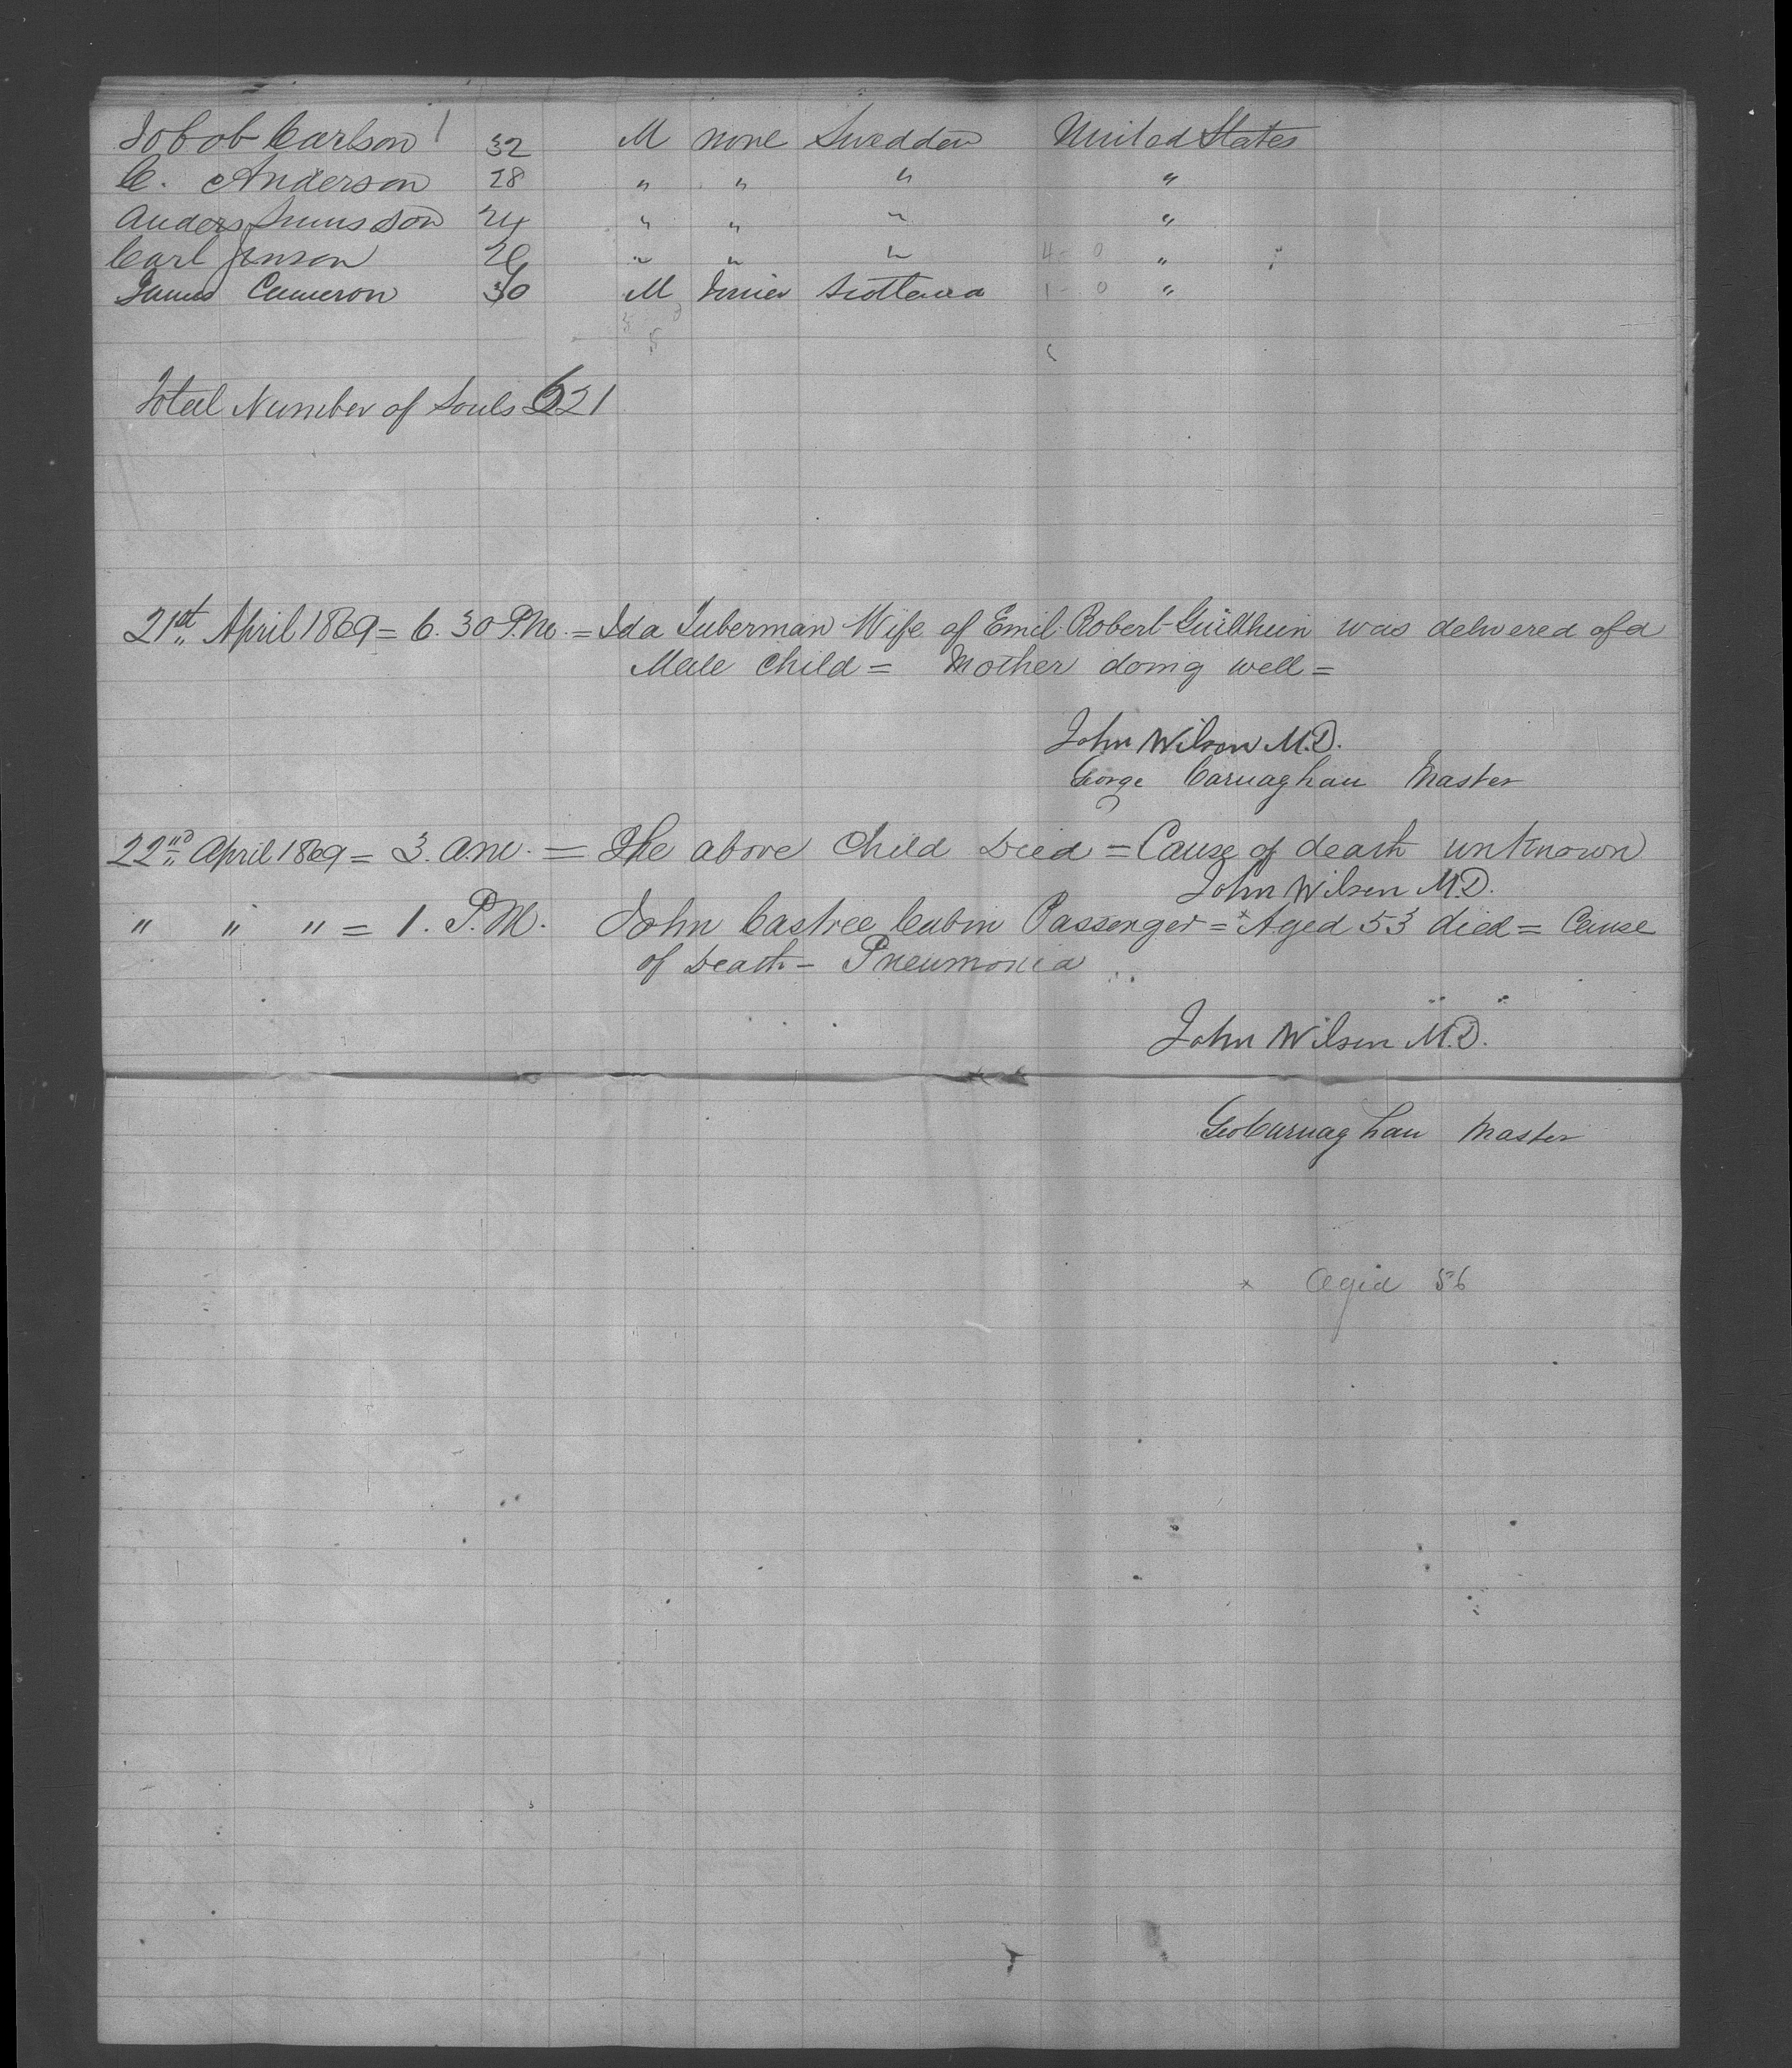 Jobob Carlson 32 M none Swedden United States
C. Anderson 28 " " " "
Anders 24 " " " "
Carl Jonson 20 " " " 4 - 0 "
James Cameron 30 M Joiner Scotland 1 - 0 "
5
Total Number of Souls 621
21st April 1869 = 6. 30 P.M. = Ida Luberman Wife of Emil Robert was delivered of a
Male Child = Mother doing well =
John Wilson M.D.
George Carnaghan Master
22nd April 1869 = 3. a.m. = The above Child Died = Cause of death unknown
John Wilson M.D.
" " " = 1. P.M. John Castree Cabin Passenger = * Aged 53 died = Cause
of Death - Pneumonia
John Wilson M.D.
Geo Carnaghan Master
* Aged 56